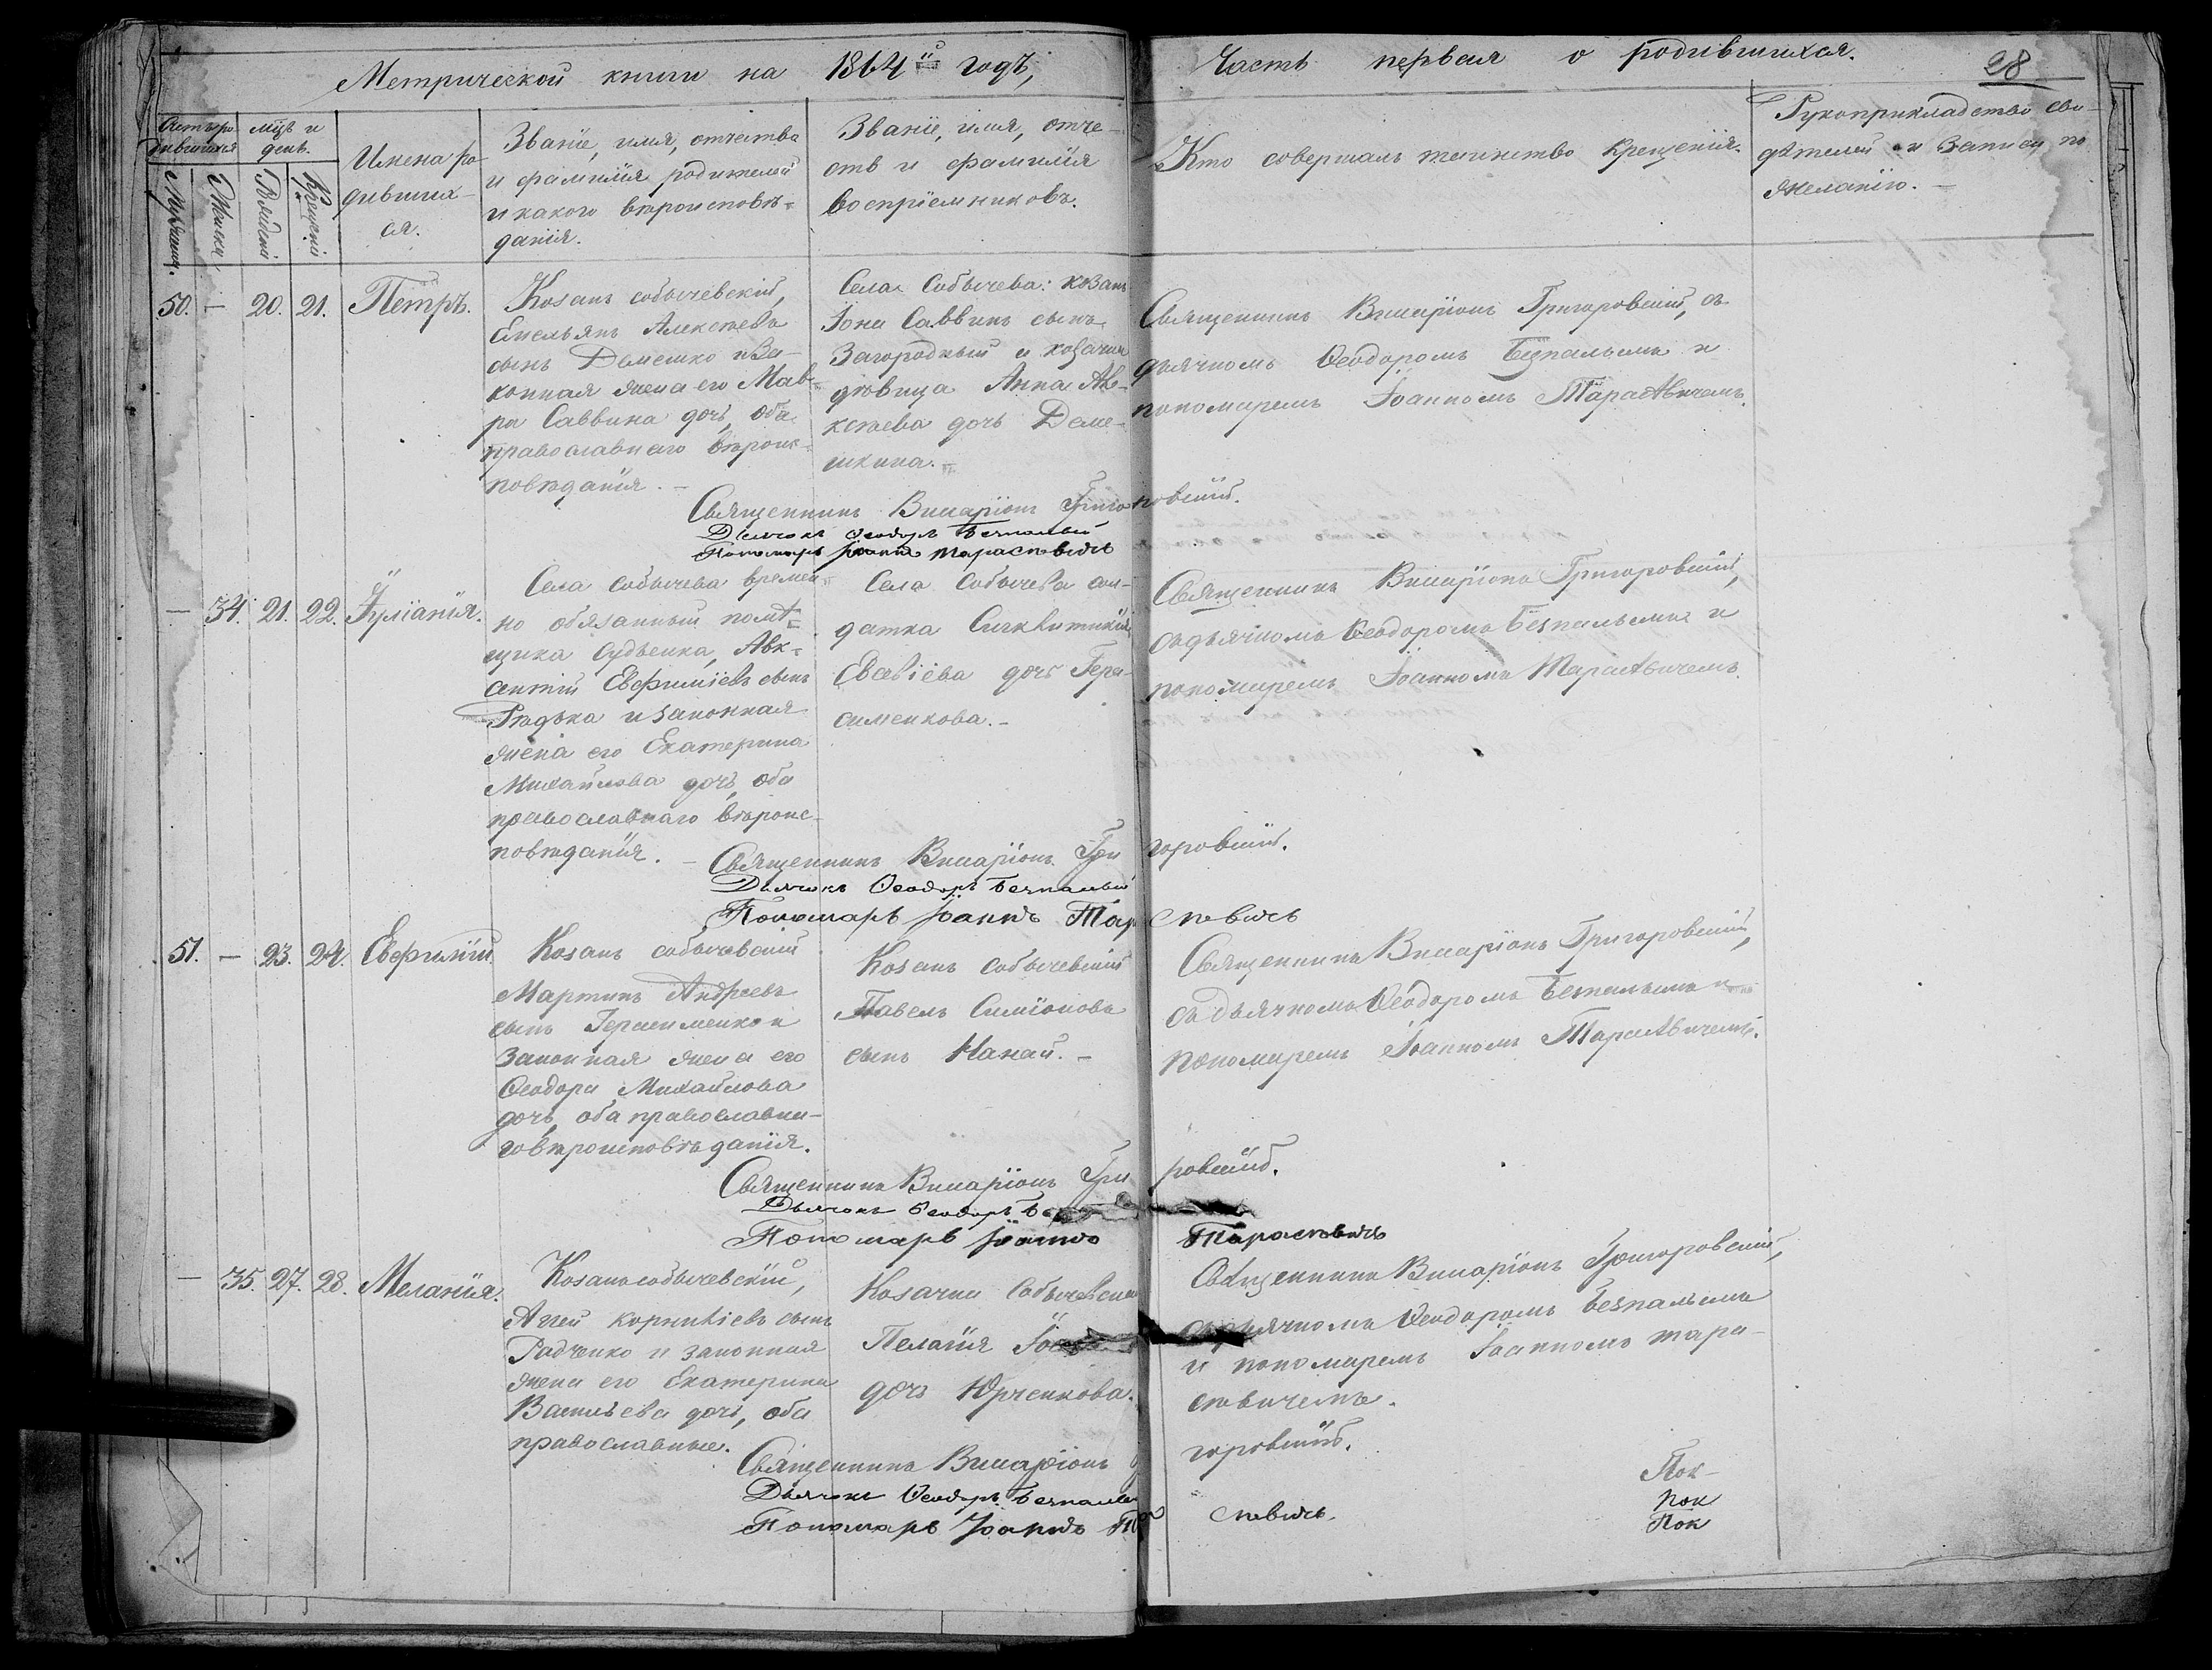 Метрической книги на 1864й годъ,
Часть первая о родившихся.
28
Счетъ ро-
дившихся
Мужеска.
Женска
мцъ и
день.
Рожденія
Крещенія
Имена ро-
дивших-
ся.
Званіе, имя, отчество
и фамилія родителей
и какого вѣроисповѣ-
данія.
Званіе, имя, отче-
ств и фамилія
воспріемниковъ.
Кто совершалъ таинство крещенія.
Рукоприкладство сви-
дѣтелей и записи по
желанію.
50. — 20. 21. Петръ.
Козакъ собычевскій,
Емельянъ Алексѣевъ
сынъ Демешко и за-
конная жена его Мав-
ра Саввина дочь, оба
православнаго вѣроис-
повѣданія. —
Села Собычева: козакъ
Іона Саввинъ сынъ
Загородный и козачка
вдовица Анна Але-
ксѣева дочь Деме-
шкина.
Священникъ Виссаріонъ Григоровскій, съ
дьячкомъ Ѳеодоромъ Безпалымъ и
пономаремъ Іоанномъ Тарасевичемъ.
Священникъ Виссаріонъ Григоровскій.
Дьячокъ Ѳеодоръ Безпалый
Пономарь Іоаннъ Тарасевичъ
— 34. 21. 22. Іуліанія.
Села Собычева времен-
но обязанный помѣ-
щика Судьенка, Авк-
сентій Евфиміевъ сынъ
Рѣдька и законная
жена его Екатерина
Михайлова дочь, оба
православнаго вѣроис-
повѣданія. —
Села Собычева сол-
датка
Евсевіева дочь Гера-
сименкова. —
Священникъ Виссаріонъ Григоровскій,
съ дьячкомъ Ѳеодоромъ Безпалымъ и
пономаремъ Іоанномъ Тарасевичемъ.
Священникъ Виссаріонъ Григоровскій.
Дьячокъ Ѳеодоръ Безпалый
Пономарь Іоаннъ Тарасевичъ
51. — 23. 24. Евфимій.
Козакъ собычевскій
Мартинъ Андреевъ
сынъ Герасименко и
законная жена его
Ѳеодора Михайлова
дочь, оба православна-
го вѣроисповѣданія.
Козакъ собычевскій
Павелъ Симіоновъ
сынъ Нанай. —
Священникъ Виссаріонъ Григоровскій,
съ дьячкомъ Ѳеодоромъ Безпалымъ и
пономаремъ Іоанномъ Тарасевичемъ.
Священникъ Виссаріонъ Гри ровскій.
Дьячокъ Ѳеодоръ Бе
Пономарь Іоаннъ Тарасевичъ
— 35. 27. 28. Меланія.
Козакъ собычевскій,
Аггей Корнилiевъ сынъ
Радченко и законная
жена его Екатерина
Васильева дочь, оба
православные.
Козачка Собычевская
Пелагія
дочь Юрченкова.
Священникъ Виссаріонъ Григоровскій,
съ дьячкомъ Ѳеодоромъ Безпалымъ
и пономаремъ Іоанномъ Тара-
севичемъ.
Священникъ Виссаріонъ горовскій.
Дьячокъ Ѳеодоръ Безпалый
Пономарь Іоаннъ Тарасевичъ.
Пок-
Пок
Пок